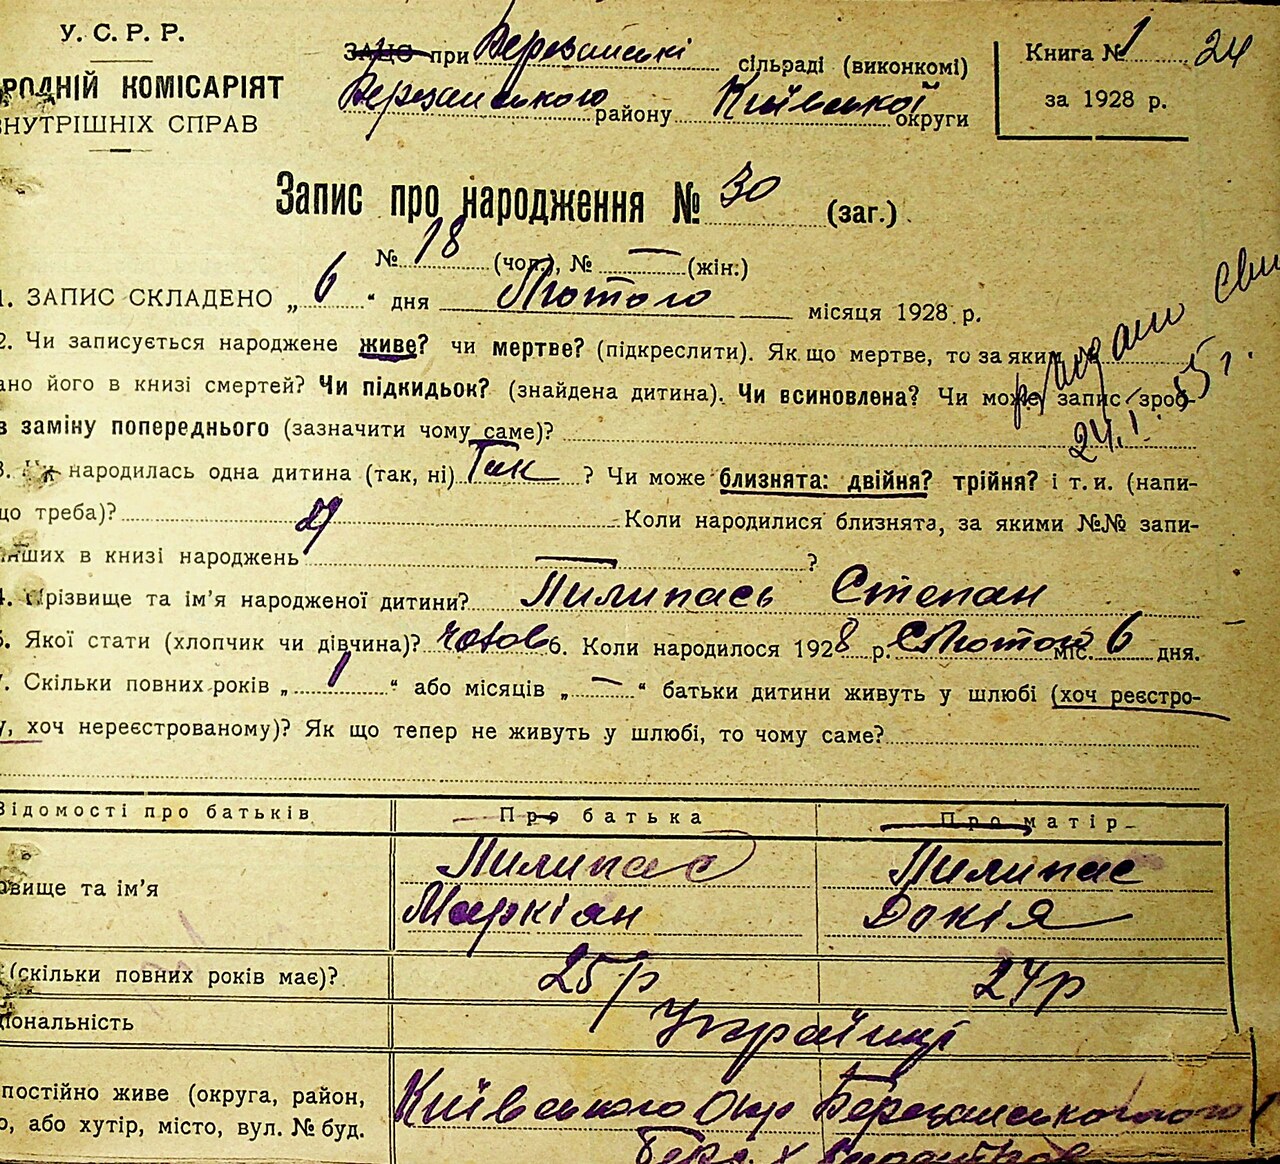 У. С. Р. Р.
РОДНІЙ КОМІСАРІЯТ
ВНУТРІШНІХ СПРАВ
ЗАЦС при Березанські сільраді (виконкомі)
Березанського району Київської округи
Книга № 1 24
за 1928 р.
Запис про народження № 30 (заг.)
№ 18 (чол.), № — (жін.)
1. ЗАПИС СКЛАДЕНО „ 6 “ дня Лютого місяця 1928 р.
2. Чи записується народжене живе? чи мертве? (підкреслити). Як що мертве, то за яким
ано його в книзі смертей? Чи підкидьок? (знайдена дитина). Чи всиновлена? Чи може запис зроб-
в заміну попереднього (зазначити чому саме)?
24.I.55 г.
3. Чи народилась одна дитина (так, ні) Так ? Чи може близнята: двійня? трійня? і т. и. (напи-
що треба)? Коли народилися близнята, за якими №№ запи-
інших в книзі народжень — ?
4. Прізвище та ім’я народженої дитини? Пилипась Степан
5. Якої стати (хлопчик чи дівчина)? чолов 6. Коли народилося 1928 р. Лютого міс. 6 дня.
7. Скільки повних років „ 1 “ або місяців „ — “ батьки дитини живуть у шлюбі (хоч реєстро-
у, хоч нереєстрованому)? Як що тепер не живуть у шлюбі, то чому саме?
Відомості про батьків Про батька Про матір
овище та ім’я Пилипас Маркіян Пилипас Докія
(скільки повних років має)? 25 р 24 р
ціональність Українці
постійно живе (округа, район, Київського Окр Березанського
о, або хутір, місто, вул. № буд.